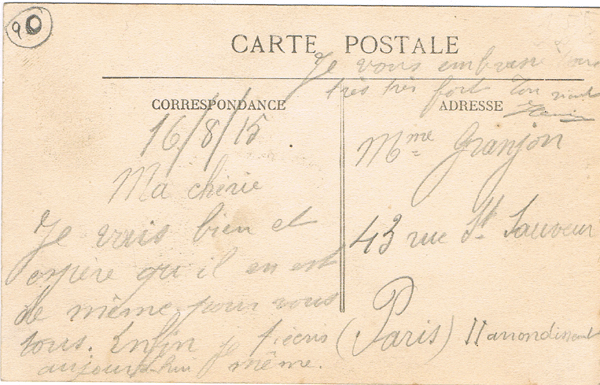 90
CARTE POSTALE
Je vous embrasse tous
très très fort Ton
CORRESPONDANCE
ADRESSE
16/8/15
Ma chérie
Je vais bien et
espère qu'il en est
de même pour vous
tous. Enfin je t'écris
aujourd'hui même.
Mme Granjon
43 rue St. Sauveur
(Paris) II arrondissement